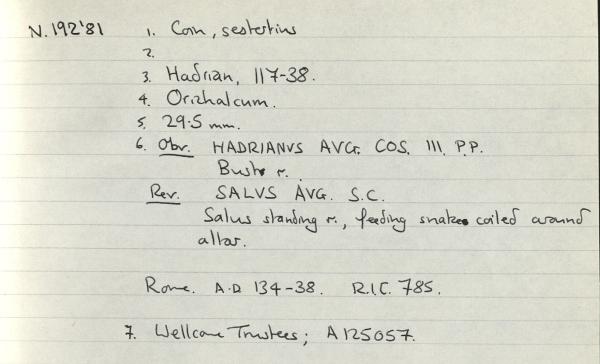 N.192'81 1. Coin, sestertius
2.
3. Hadrian, 117-38.
4. Orichalcum.
5. 29.5 mm.
6. Obv. HADRIANVS AVG. COS. III. P.P.
Bust r.
Rev. SALVS AVG. S.C.
Salus standing r., feeding snake coiled around
altar.
Rome. A.D 134-38. R.I.C. 785.
7. Wellcome Trustees; A125057.